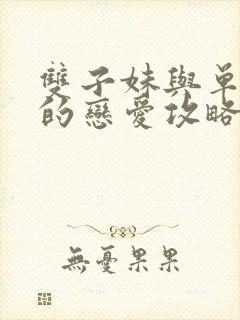 雙子妹與單
的戀愛攻略
無憂果果